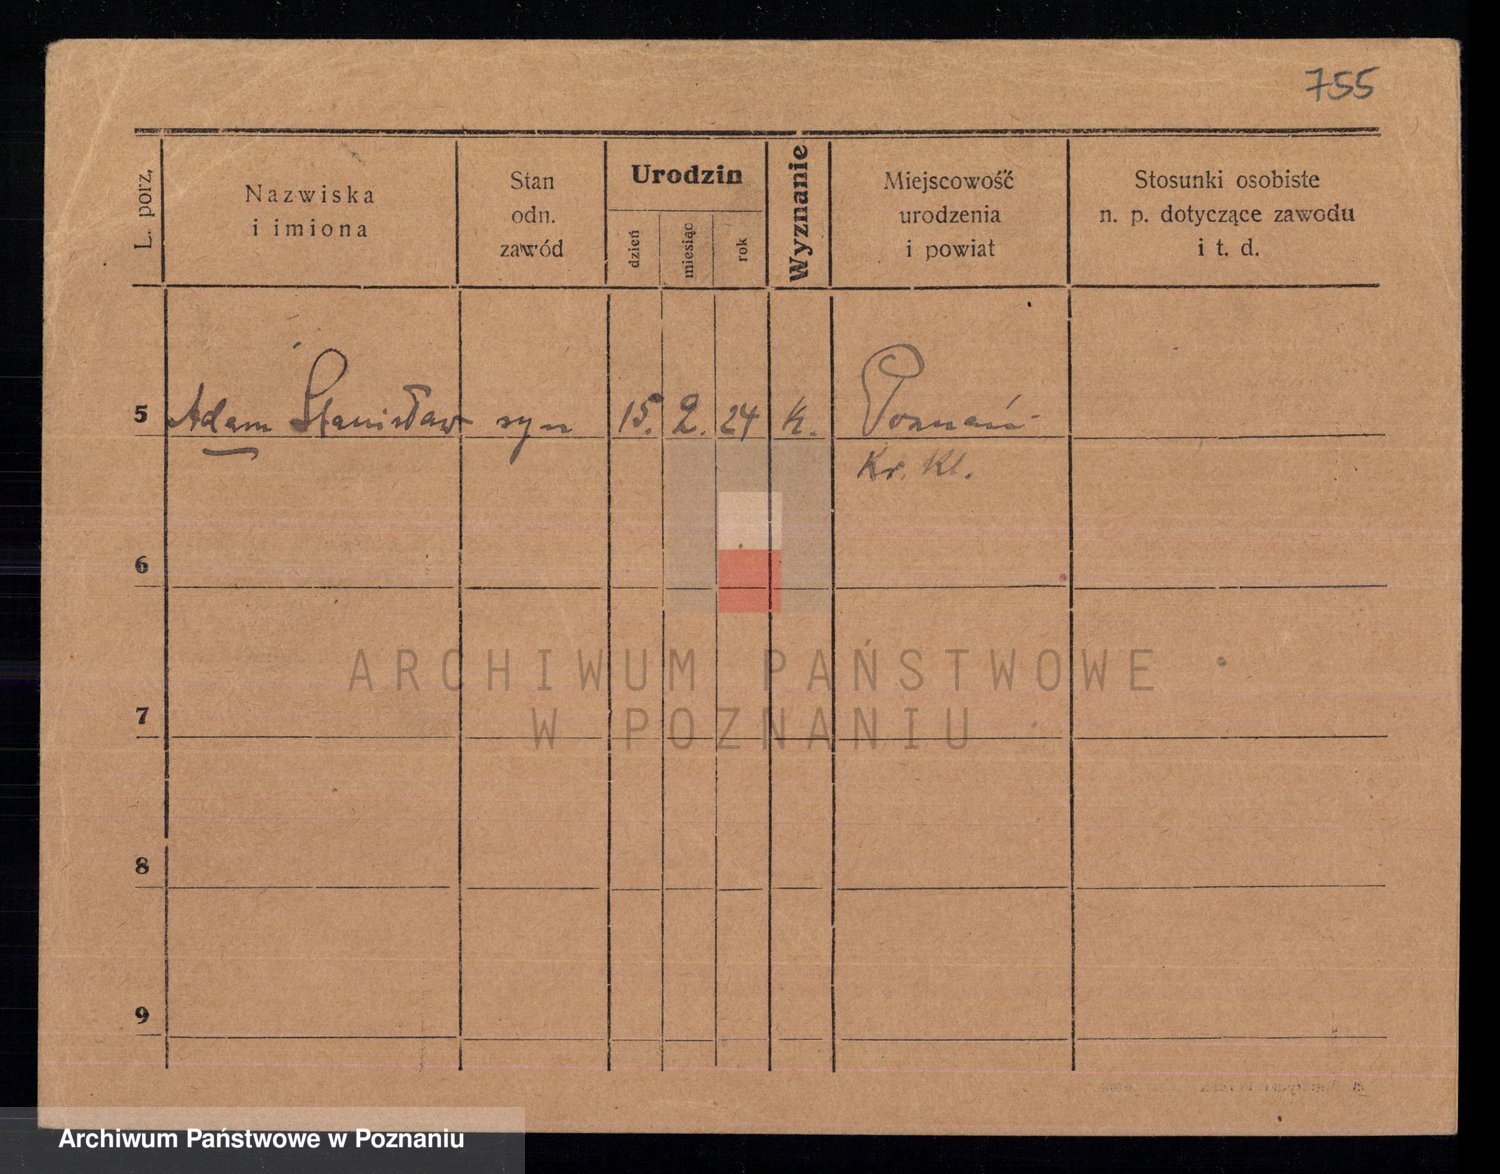 755
L. porz.
Nazwiska
i imiona
Stan
odn.
zawód
Urodzin
dzień
miesiąc
rok
Wyznanie
Miejscowość
urodzenia
i powiat
Stosunki osobiste
n. p. dotyczące zawodu
i t. d.
5 Adam Stanisław syn 15. 2. 24 k. Poznań
Kr. Kl.
6
7
8
9
ARCHIWUM PAŃSTWOWE
W POZNANIU
Archiwum Państwowe w Poznaniu